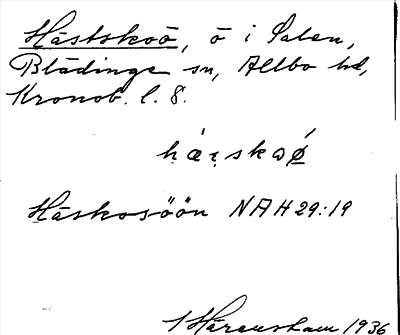 Hästskoö, ö i Salen,
Blädinge sn, Allbo hd,
Kronob. l. 8.
Häskosöön NAH 29:19
1936